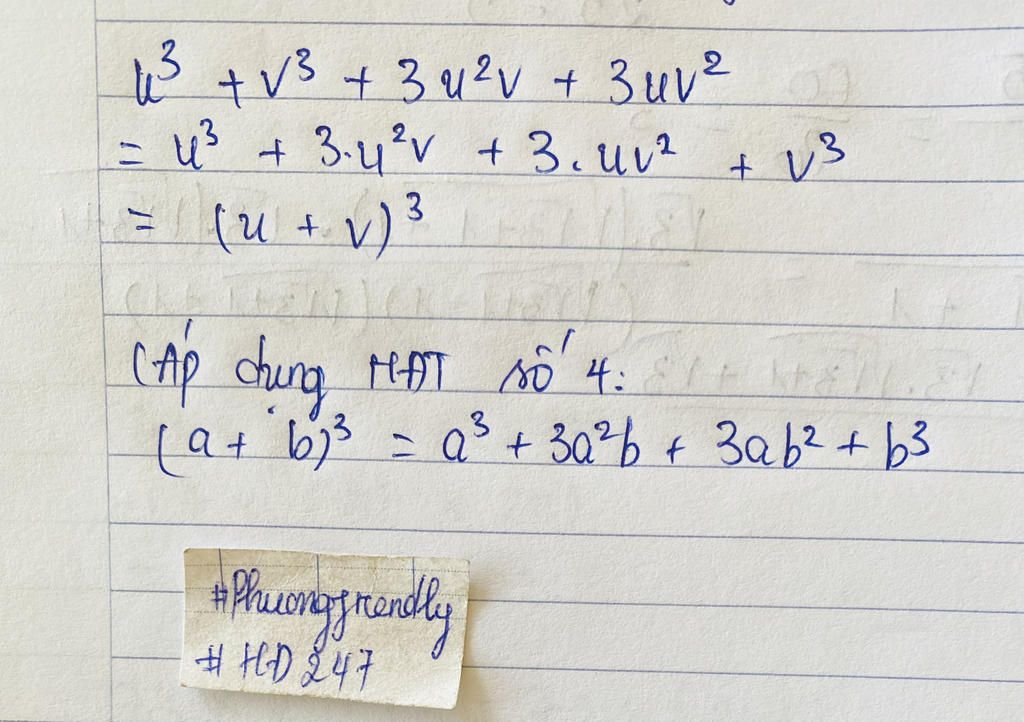 u³ + v³ + 3u²v + 3uv²
= u³ + 3.u²v + 3.uv² + v³
= (u + v)³
(Áp dụng HĐT số 4:
(a + b)³ = a³ + 3a²b + 3ab² + b³
#Phuongfrendly
#HD247